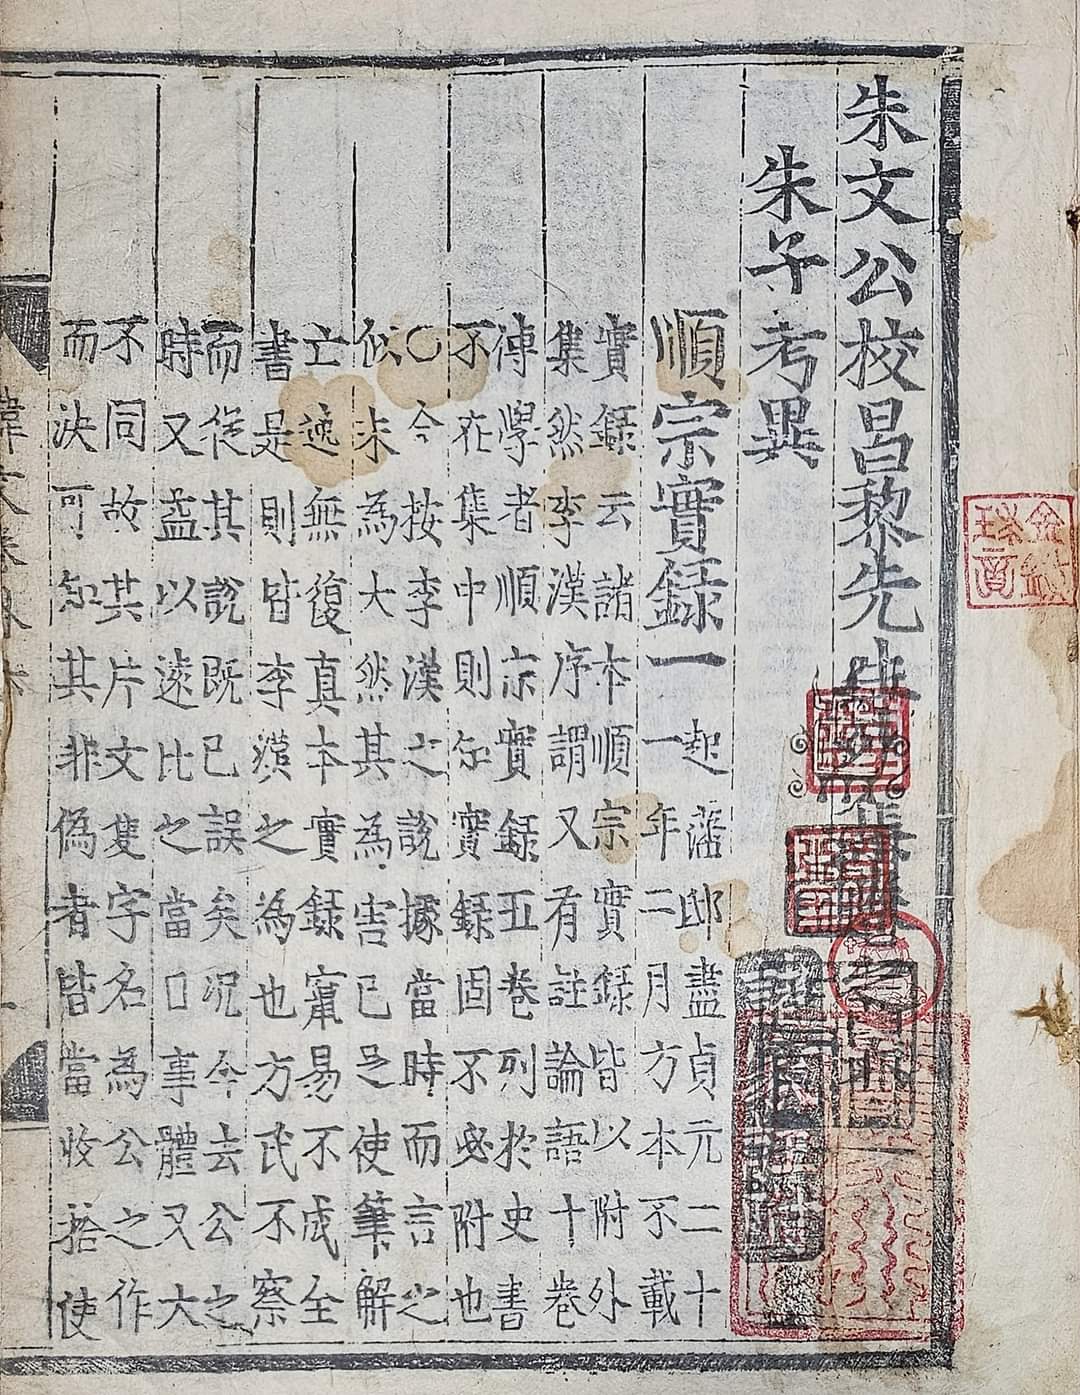 朱文公校昌黎先生
朱子考異
順宗實録一
起藩邸盡貞元二十
一年二月方本不載
實録云諸本順宗實録皆以附外
集然李漢序謂又有註論語十卷
傳學者順宗實録五卷列於史書
不在集中則知實録固不必附也
〇今按李漢之說據當時而言之
似未為大然其為害已足使筆解
亡逸無復真本實録竄易不成至
書是則皆李漢之為也方氏不察
而從其說既已誤矣況今去公之
時又盖以遠比之當日事體又大
不同故其片文隻字名為公之作
而決可知其非偽者皆當收拾使